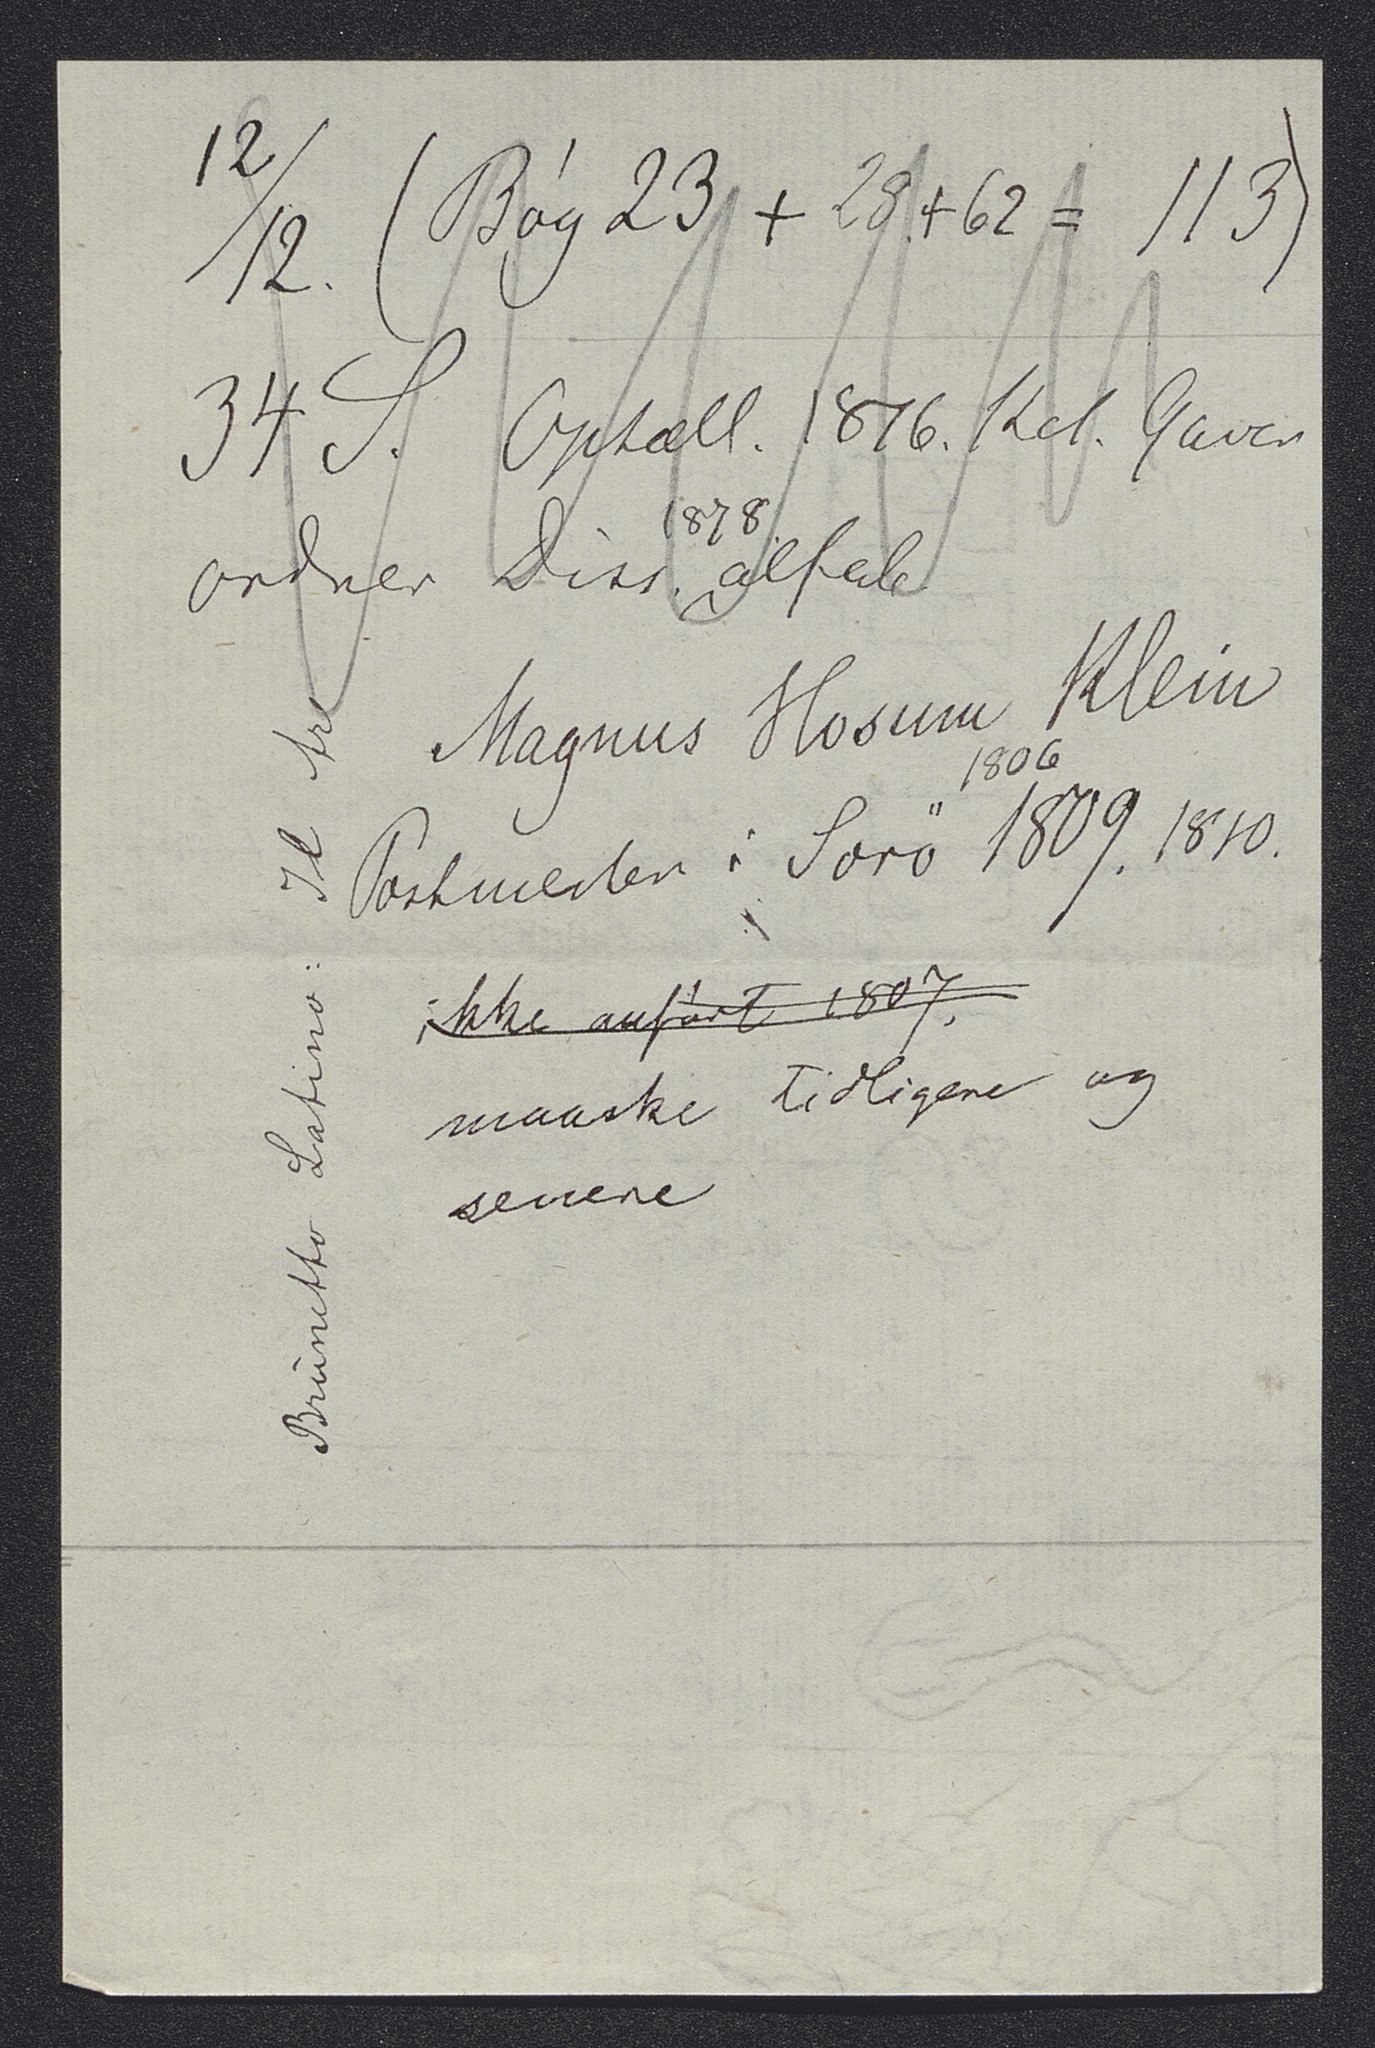 12/12. (Bög 23 + 28 + 62 = 113)
34 S. Optæll. 1876. Kcl. Gaver
1878
ordner Diss. alfab
Magnus Hosum Klein
1806
Postmester i Sorö 1809. 1810.
ikke anført 1807.
maaske tidligere og
senere
Brunetto Latino: Il tre